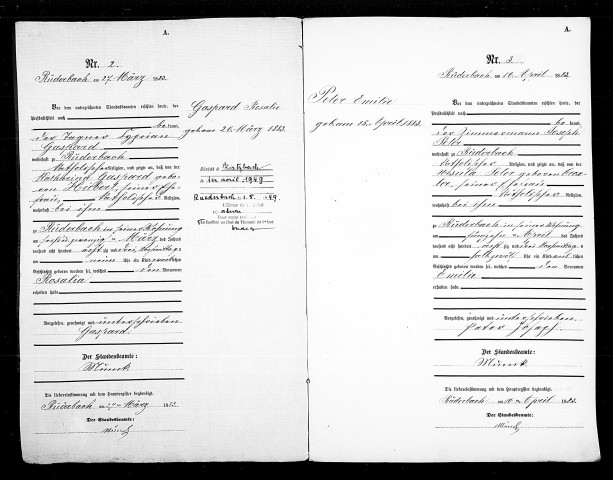 A.
Nr. 2.
Rüderbach am 27. März 1883.
Vor dem unterzeichneten Standesbeamten erschien heute, der
Persönlichkeit nach
be kannt,
der Tagner Cyprian
Gaspard
wohnhaft zu Rüderbach
katholischer Religion, und zeigte an, daß von der
Gaspard gebo-
ren Hubert, seiner Ehe-
frau, katholischer Religion,
wohnhaft bei ihm
zu Rüderbach in seiner Wohnung
am März des Jahres
tausend acht hundert acht zig und drei Vormittags
um neun Uhr ein Kind weiblichen
Geschlecht geboren worden sei, welches den Vornamen
Rosalia
erhalten habe
Vorgelesen, genehmigt und unterschrieben
Gaspard.
Der Standesbeamte:
Munck
Die Uebereinstimmung mit dem Hauptregister beglaubigt
Rüderbach am 27ten März 1883.
Der Standesbeamte:
Munck
Gaspard Rosalie
geboren 26. März 1883.
Décédé à
le 1er avril 1949
Ruederbach 1.5.1949.
A.
Nr. 3.
Rüderbach am 16. April 1883.
Vor dem unterzeichneten Standesbeamten erschien heute, der
Persönlichkeit nach
be kannt,
der Zimmermann Joseph
Peter
wohnhaft zu Rüderbach
katholischer Religion, und zeigte an, daß von der
Ursula Peter geborene
seiner Ehefrau
katholischer Religion,
wohnhaft bei ihm
zu Rüderbach in seiner Wohnung
am April des Jahres
tausend acht hundert acht zig und drei
um Uhr ein Kind
Geschlecht geboren worden sei, welches den Vornamen
Emilie
erhalten habe
Vorgelesen, genehmigt und unterschrieben
Peter Joseph.
Der Standesbeamte:
Munck
Die Uebereinstimmung mit dem Hauptregister beglaubigt
Rüderbach am 16ten April 1883.
Der Standesbeamte:
Munck
Peter Emilie
geboren 15. April 1883.